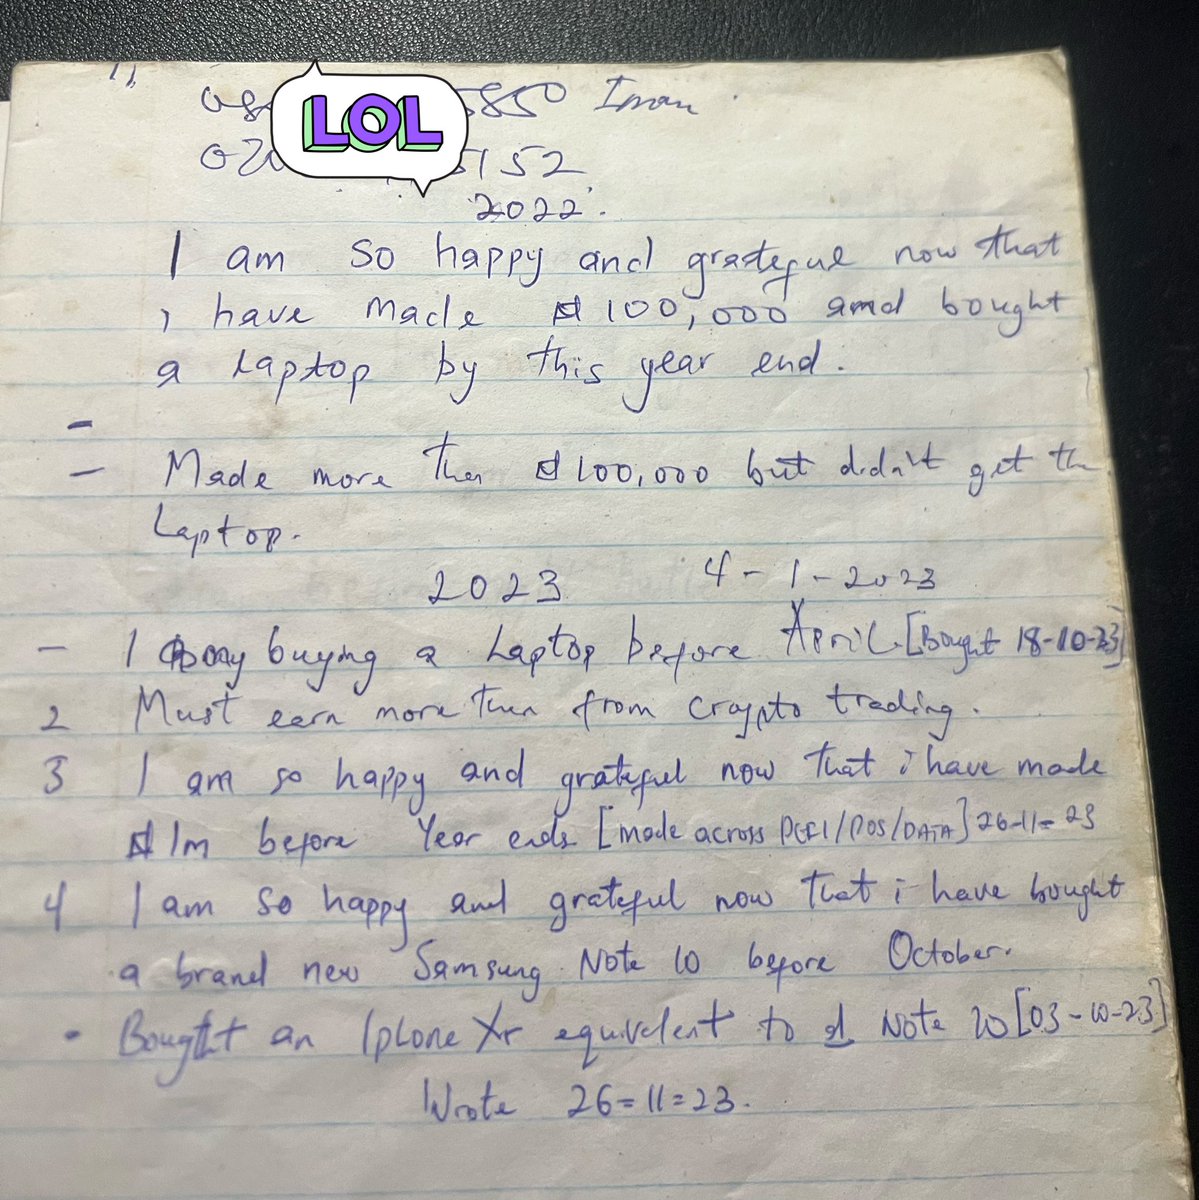 11
080 5850 Iman
070 5152
LOL
2022.
I am so happy and grateful now that
i have made ₦100,000 and bought
a laptop by this year end.
-
- Made more then ₦100,000 but didn't get the
Laptop.
2023 4-1-2023
- I buying a Laptop before April. [Bought 18-10-23]
2 Must earn more then from crypto trading.
3 I am so happy and grateful now that i have made
₦1m before Year ends [made across /POS/DATA] 26-11-23
4 I am so happy and grateful now that i have bought
a brand new Samsung Note 10 before October.
- Bought an Iphone Xr equivelent to Note 10 [03-10-23]
Wrote 26=11=23.